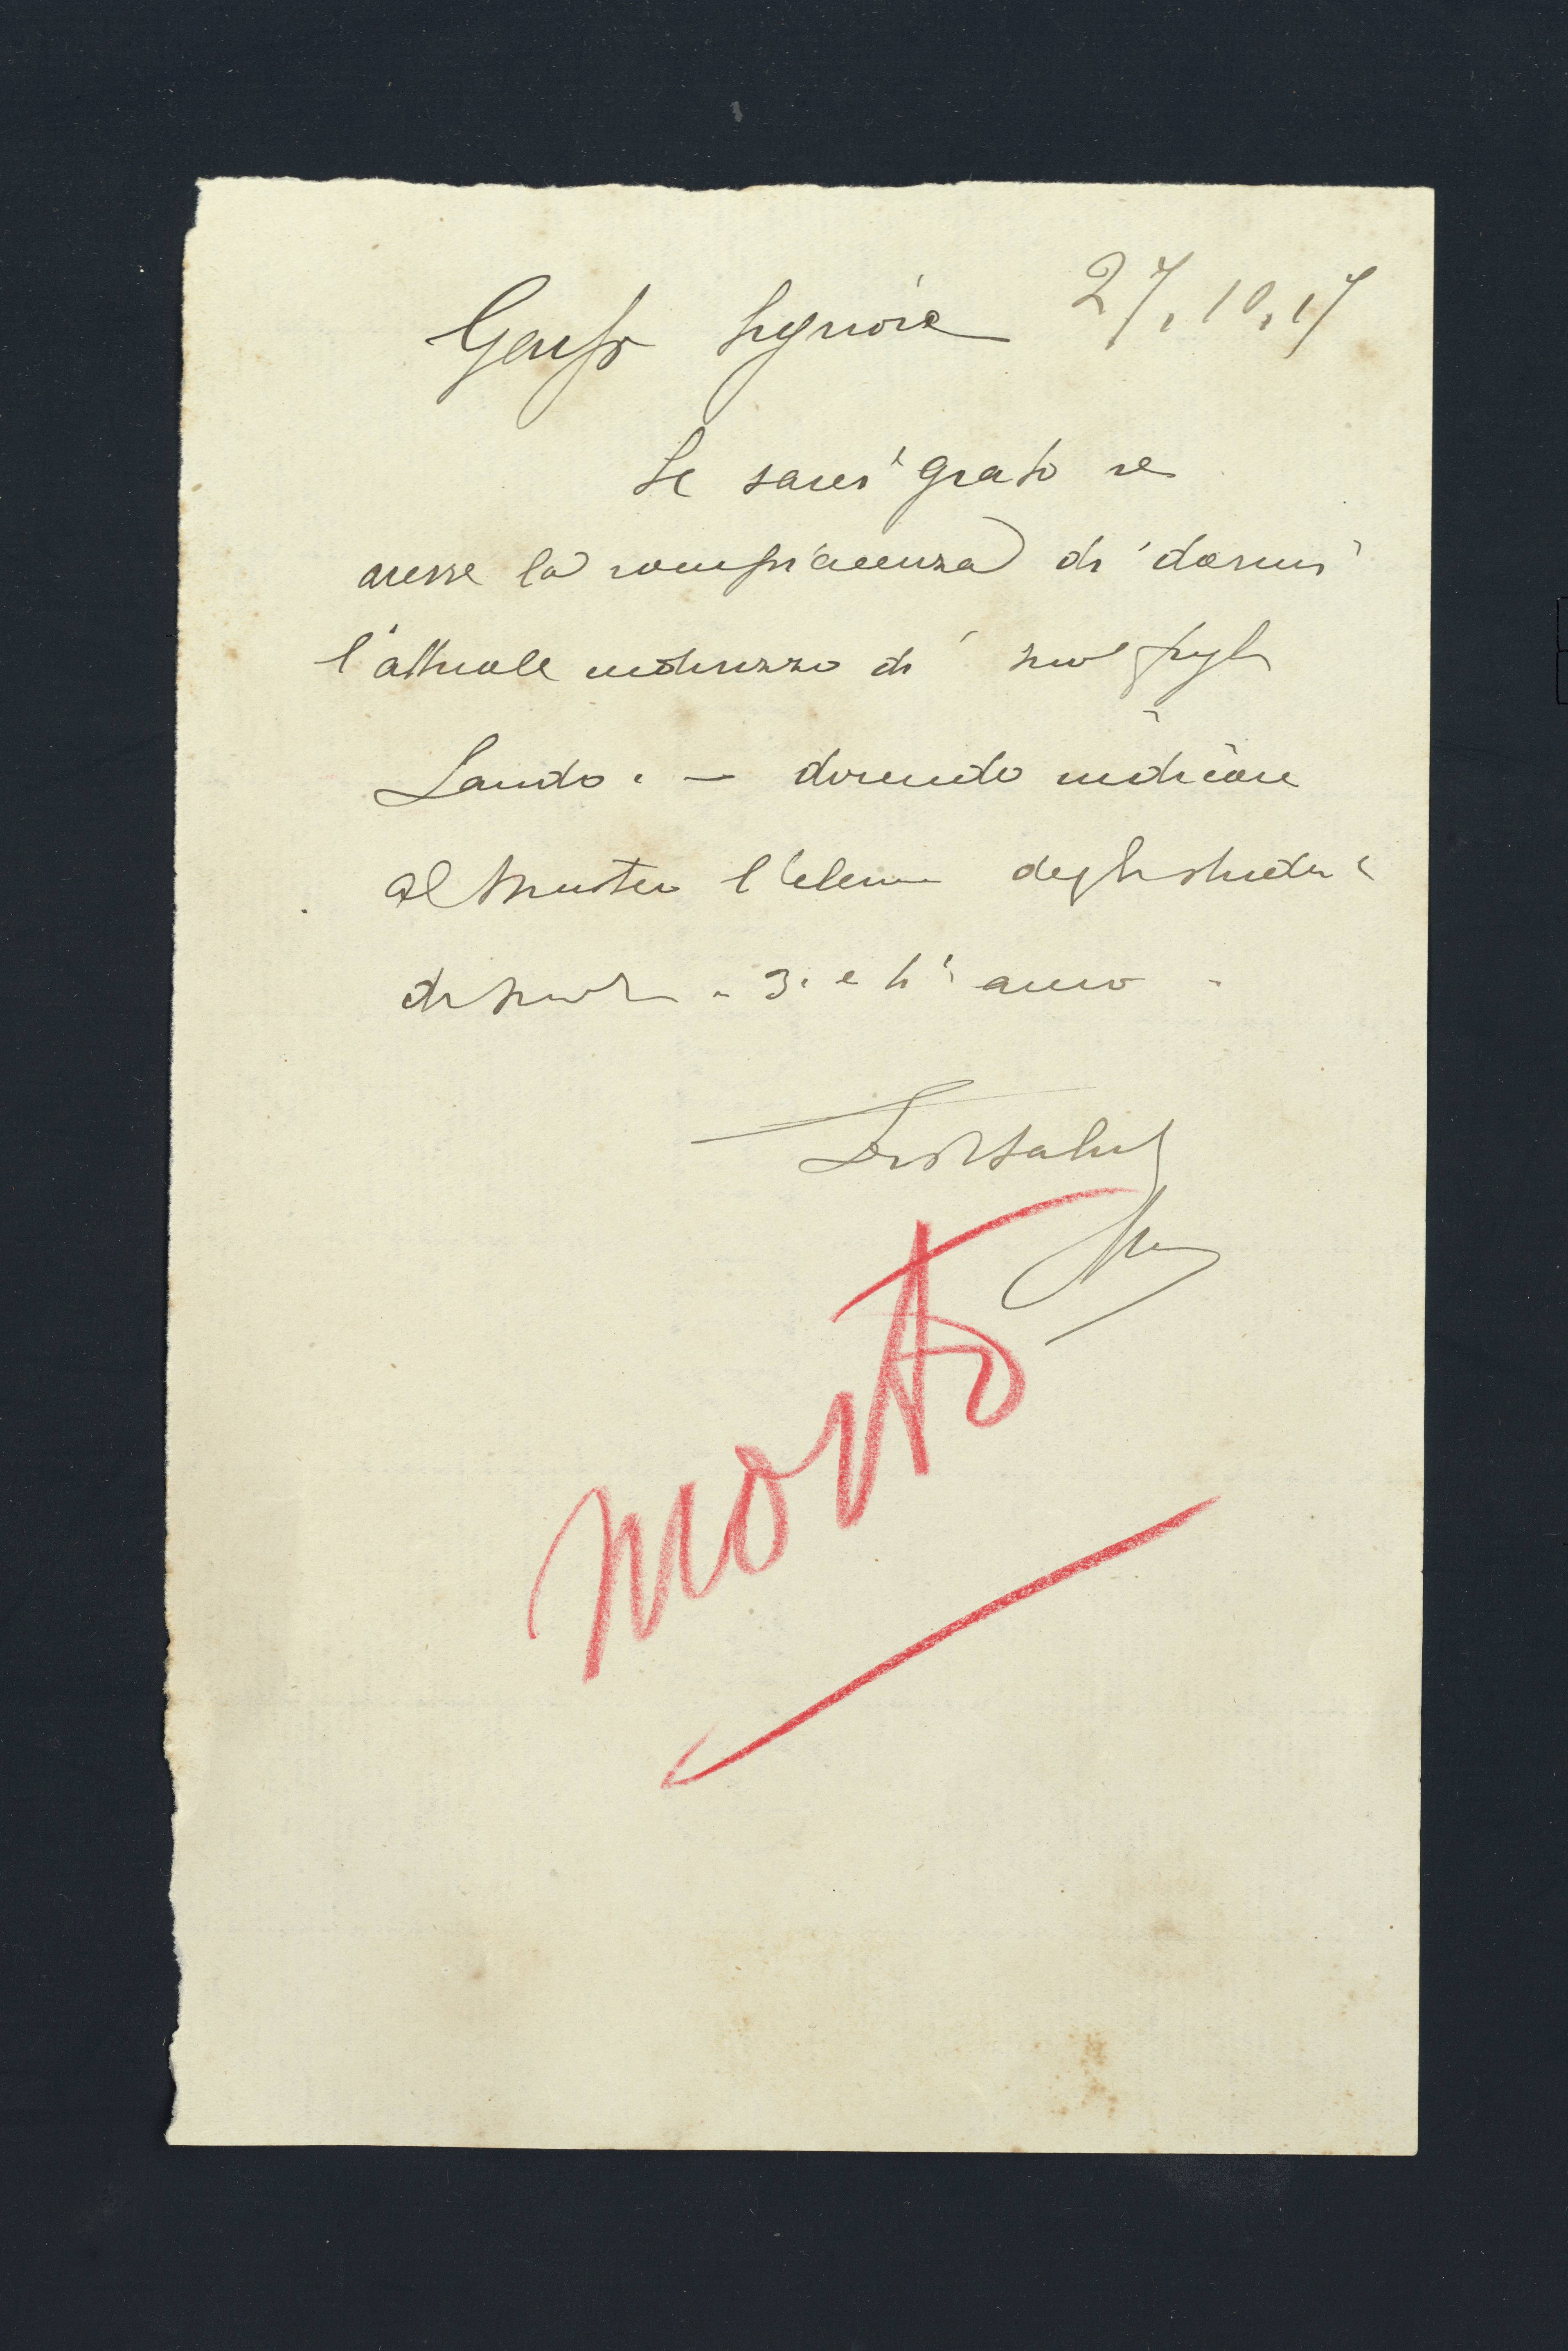 27.10.17
Gent. Signora
Le sarei grato se
avesse la compiacenza di darmi
l'attuale indirizzo di suo figlio
Lando. — dovendo indicare
al Ministero l'elenco degli studenti
di 3. e 4° anno
Disti saluti
morto